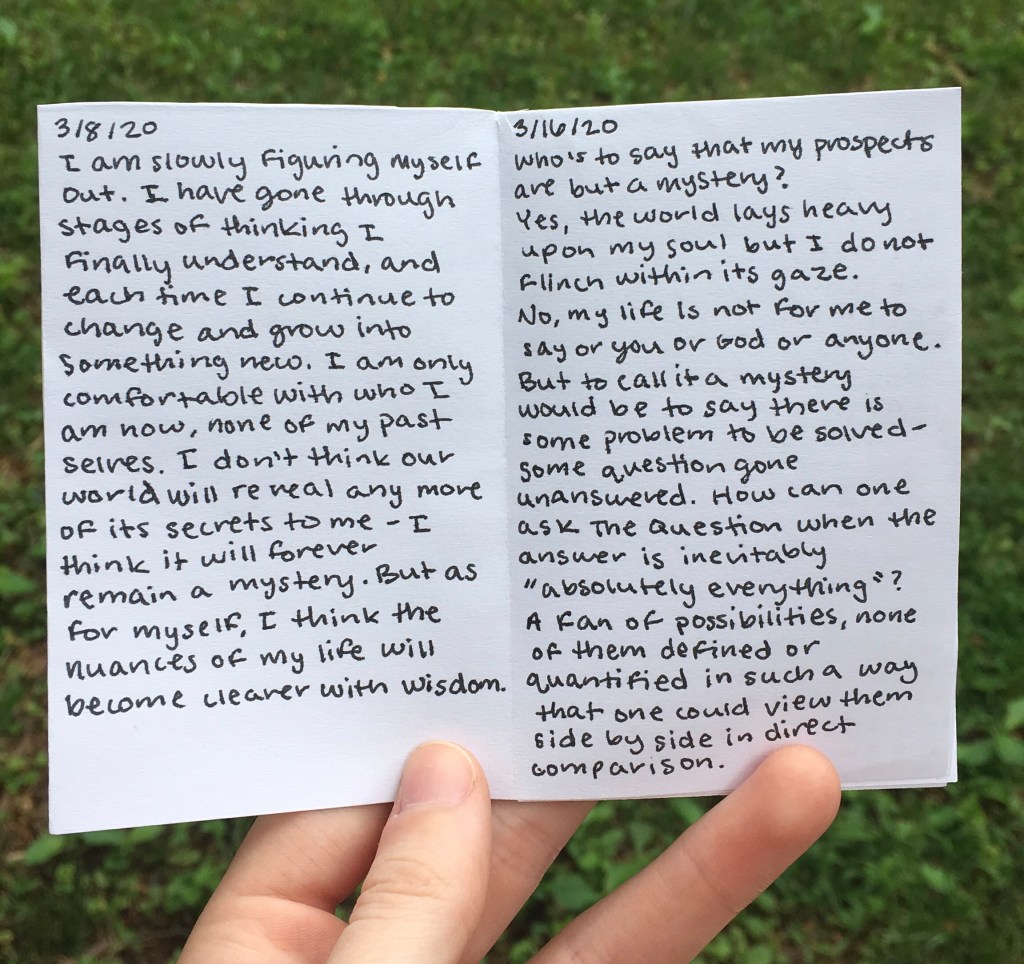 3/8/20
I am slowly figuring myself
out. I have gone through
stages of thinking I
finally understand, and
each time I continue to
change and grow into
something new. I am only
comfortable with who I
am now, none of my past
selves. I don't think our
world will reveal any more
of its secrets to me - I
think it will forever
remain a mystery. But as
for myself, I think the
nuances of my life will
become clearer with wisdom.
3/16/20
who's to say that my prospects
are but a mystery?
Yes, the world lays heavy
upon my soul but I do not
flinch within its gaze.
No, my life is not for me to
say or you or God or anyone.
But to call it a mystery
would be to say there is
some problem to be solved-
some question gone
unanswered. How can one
ask the question when the
answer is inevitably
"absolutely everything"?
A fan of possibilities, none
of them defined or
quantified in such a way
that one could view them
side by side in direct
comparison.